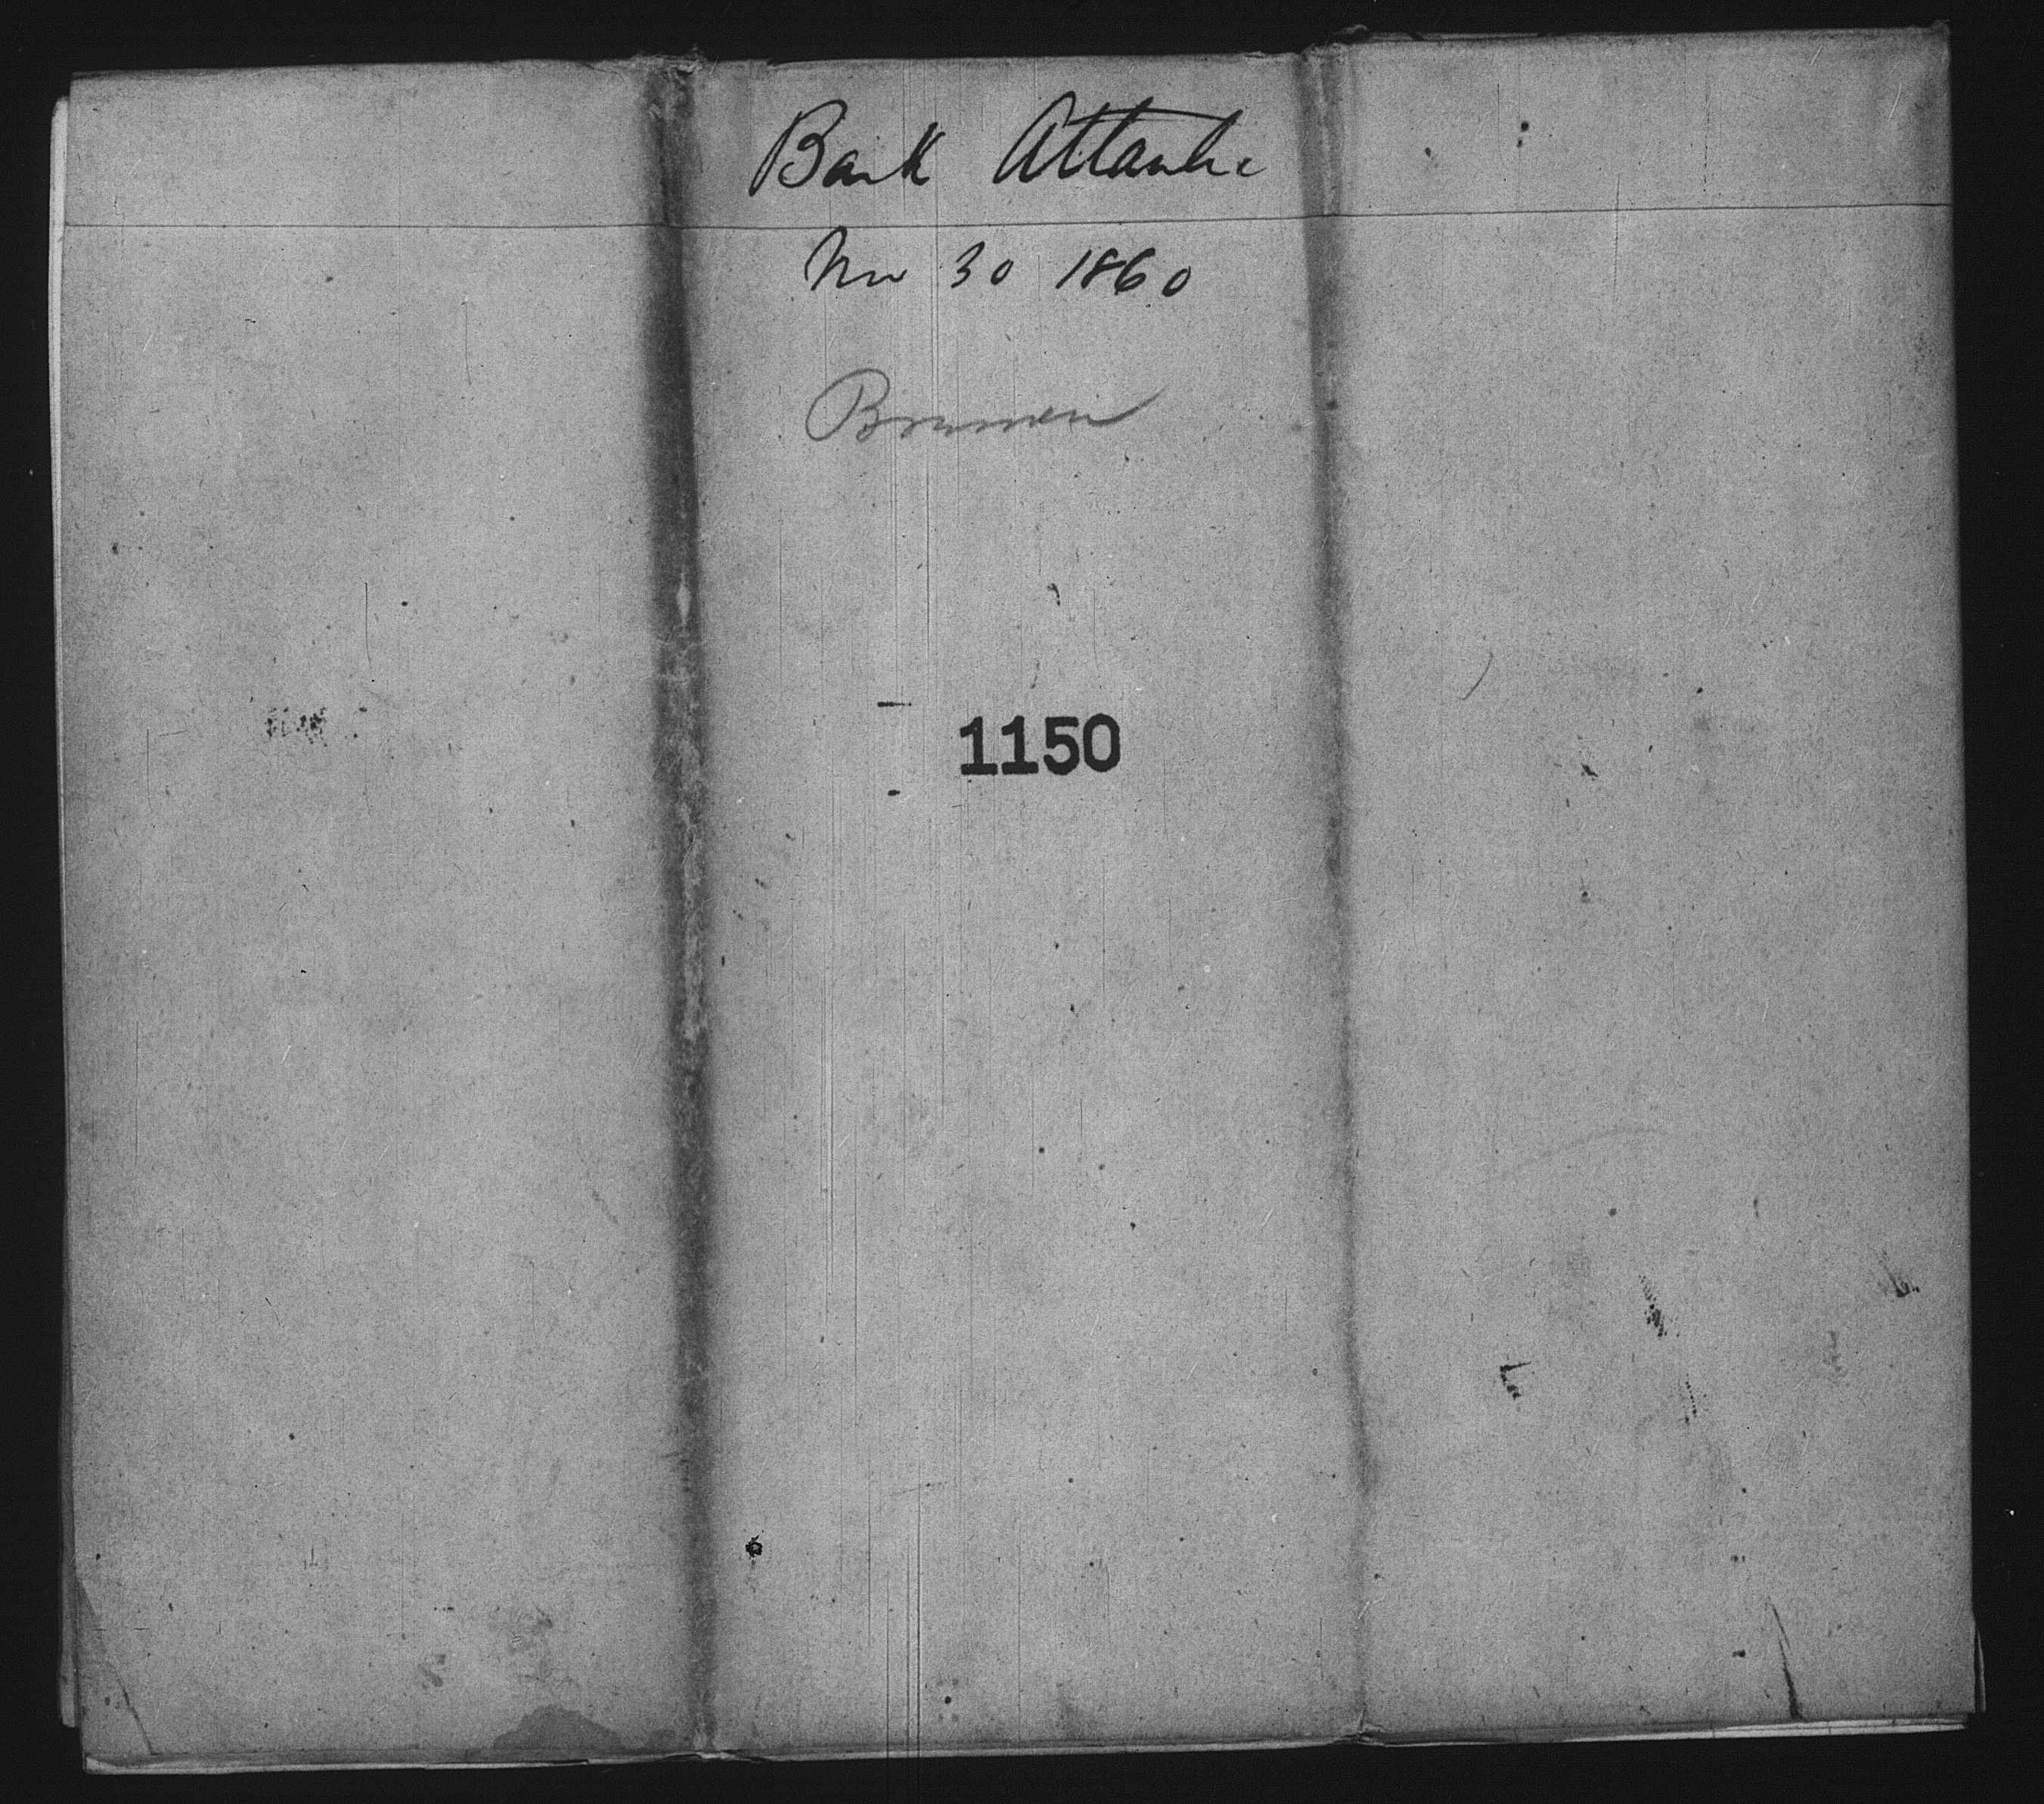 Bark Atlantic
Nov 30 1860
Bremen
1150